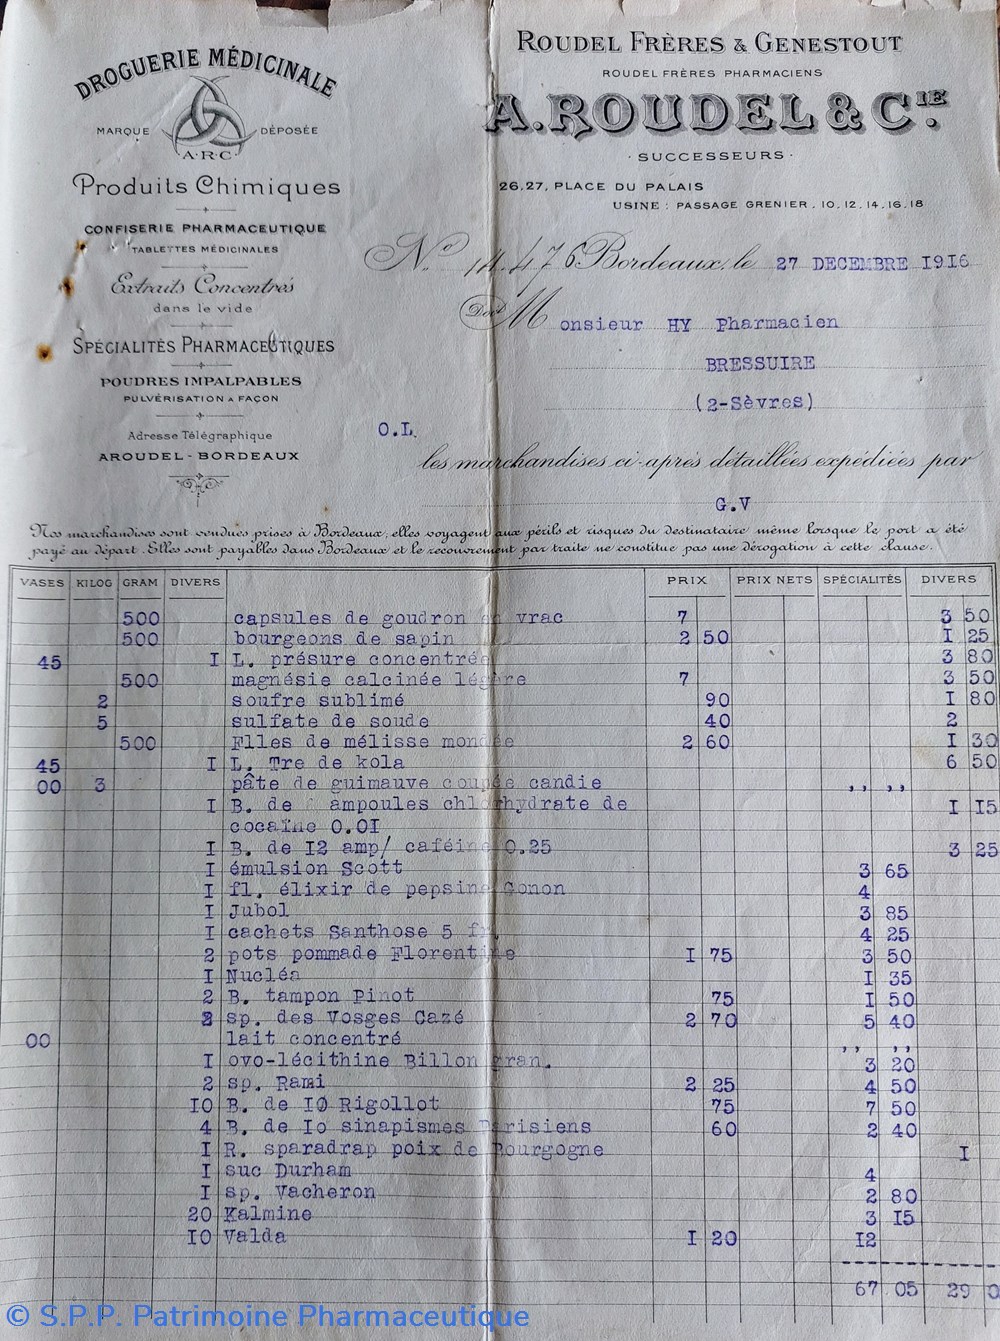 DROGUERIE MÉDICINALE
MARQUE DÉPOSÉE
A·R·C·
Produits Chimiques
CONFISERIE PHARMACEUTIQUE
TABLETTES MÉDICINALES
Extraits Concentrés
dans le vide
SPÉCIALITÉS PHARMACEUTIQUES
POUDRES IMPALPABLES
PULVÉRISATION A FAÇON
Adresse Télégraphique
AROUDEL - BORDEAUX
ROUDEL FRÈRES & GENESTOUT
ROUDEL FRÈRES PHARMACIENS
A. ROUDEL & CIE.
· SUCCESSEURS ·
26,27, PLACE DU PALAIS
USINE : PASSAGE GRENIER . 10.12.14.16.18
No 14.476 Bordeaux, le 27 DECEMBRE 1916
Doit Monsieur HY Pharmacien
BRESSUIRE
(2-Sèvres)
O.L.
les marchandises ci-après détaillées expédiées par
G.V
Nos marchandises sont vendues prises à Bordeaux, elles voyagent aux périls et risques du destinataire même lorsque le port a été
payé au départ. Elles sont payables dans Bordeaux et le recouvrement par traite ne constitue pas une dérogation à cette clause.
VASES KILOG GRAM DIVERS PRIX PRIX NETS SPÉCIALITÉS DIVERS
500 capsules de goudron en vrac 7 3 50
500 bourgeons de sapin 2 50 I 25
45 I L. présure concentrée 3 80
500 magnésie calcinée légère 7 3 50
2 soufre sublimé 90 I 80
5 sulfate de soude 40 2
500 Flles de mélisse mondée 2 60 I 30
45 I L. Tre de kola 6 50
00 3 pâte de guimauve coupée candie ,, ,,
I B. de ampoules chlorhydrate de I I5
cocaïne 0.0I
I B. de I2 amp/ caféine 0.25 3 25
I émulsion Scott 3 65
I fl. élixir de pepsine Gonon 4
I Jubol 3 85
I cachets Santhose 5 fr. 4 25
2 pots pommade Florentine I 75 3 50
I Nucléa I 35
2 B. tampon Pinot 75 I 50
2 sp. des Vosges Cazé 2 70 5 40
00 lait concentré ,, ,,
I ovo-lécithine Billon gran. 3 20
2 sp. Rami 2 25 4 50
IO B. de IO Rigollot 75 7 50
4 B. de Io sinapismes Parisiens 60 2 40
I R. sparadrap poix de Bourgogne I
I suc Durham 4
I sp. Vacheron 2 80
20 Kalmine 3 I5
IO Valda I 20 I2
67 05 29 0
© S.P.P. Patrimoine Pharmaceutique